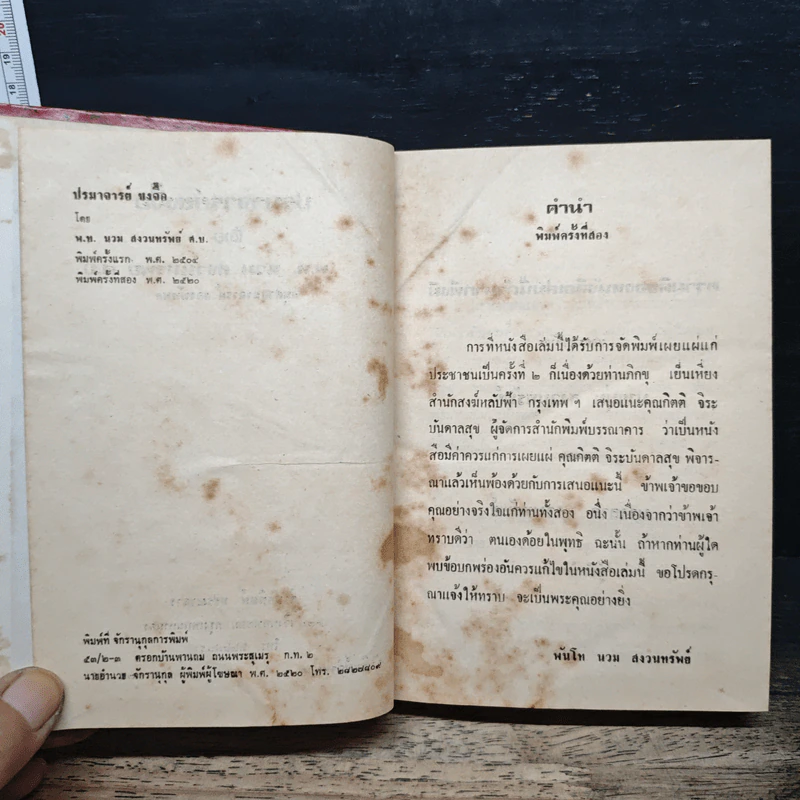 ปรมาจารย์ ขงจื๊อ
โดย
พ.ท. นวม สงวนทรัพย์ ศ.บ.
พิมพ์ครั้งแรก พ.ศ. ๒๕๐๔
พิมพ์ครั้งที่สอง พ.ศ. ๒๕๒๐
พิมพ์ที่ จักรานุกุลการพิมพ์
๕๓/๒-๓ ตรอกบ้านพานถม ถนนพระสุเมรุ ก.ท. ๒
นายอำนวย จักรานุกุล ผู้พิมพ์ผู้โฆษณา พ.ศ. ๒๕๒๐ โทร. ๒๘๒๘๘๐๙
คำนำ
พิมพ์ครั้งที่สอง
การที่หนังสือเล่มนี้ได้รับการจัดพิมพ์เผยแผ่แก่
ประชาชนเป็นครั้งที่ ๒ ก็เนื่องด้วยท่านภิกขุ เย็นเหี่ยง
สำนักสงฆ์หลับฟ้า กรุงเทพ ฯ เสนอแนะคุณกิตติ จิระ
บันดาลสุข ผู้จัดการสำนักพิมพ์บรรณาคาร ว่าเป็นหนัง
สือมีค่าควรแก่การเผยแผ่ คุณกิตติ จิระบันดาลสุข พิจาร
ณาแล้วเห็นพ้องด้วยกับการเสนอแนะนี้ ข้าพเจ้าขอขอบ
คุณอย่างจริงใจแก่ท่านทั้งสอง อนึ่ง เนื่องจากว่าข้าพเจ้า
ทราบดีว่า ตนเองด้อยในพุทธิ ฉะนั้น ถ้าหากท่านผู้ใด
พบข้อบกพร่องอันควรแก้ไขในหนังสือเล่มนี้ ขอโปรดกรุ
ณาแจ้งให้ทราบ จะเป็นพระคุณอย่างยิ่ง
พันโท นวม สงวนทรัพย์
18
19
20